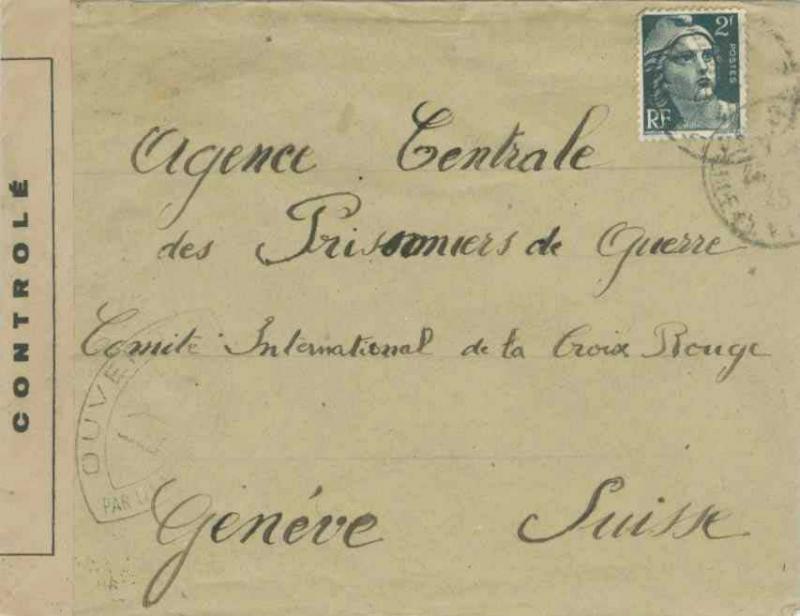 CONTROLÉ
2F
POSTES
RF
Agence Centrale
des Prisonniers de Guerre
Comité International de la Croix Rouge
Genéve Suisse
OUVE
PAR
45